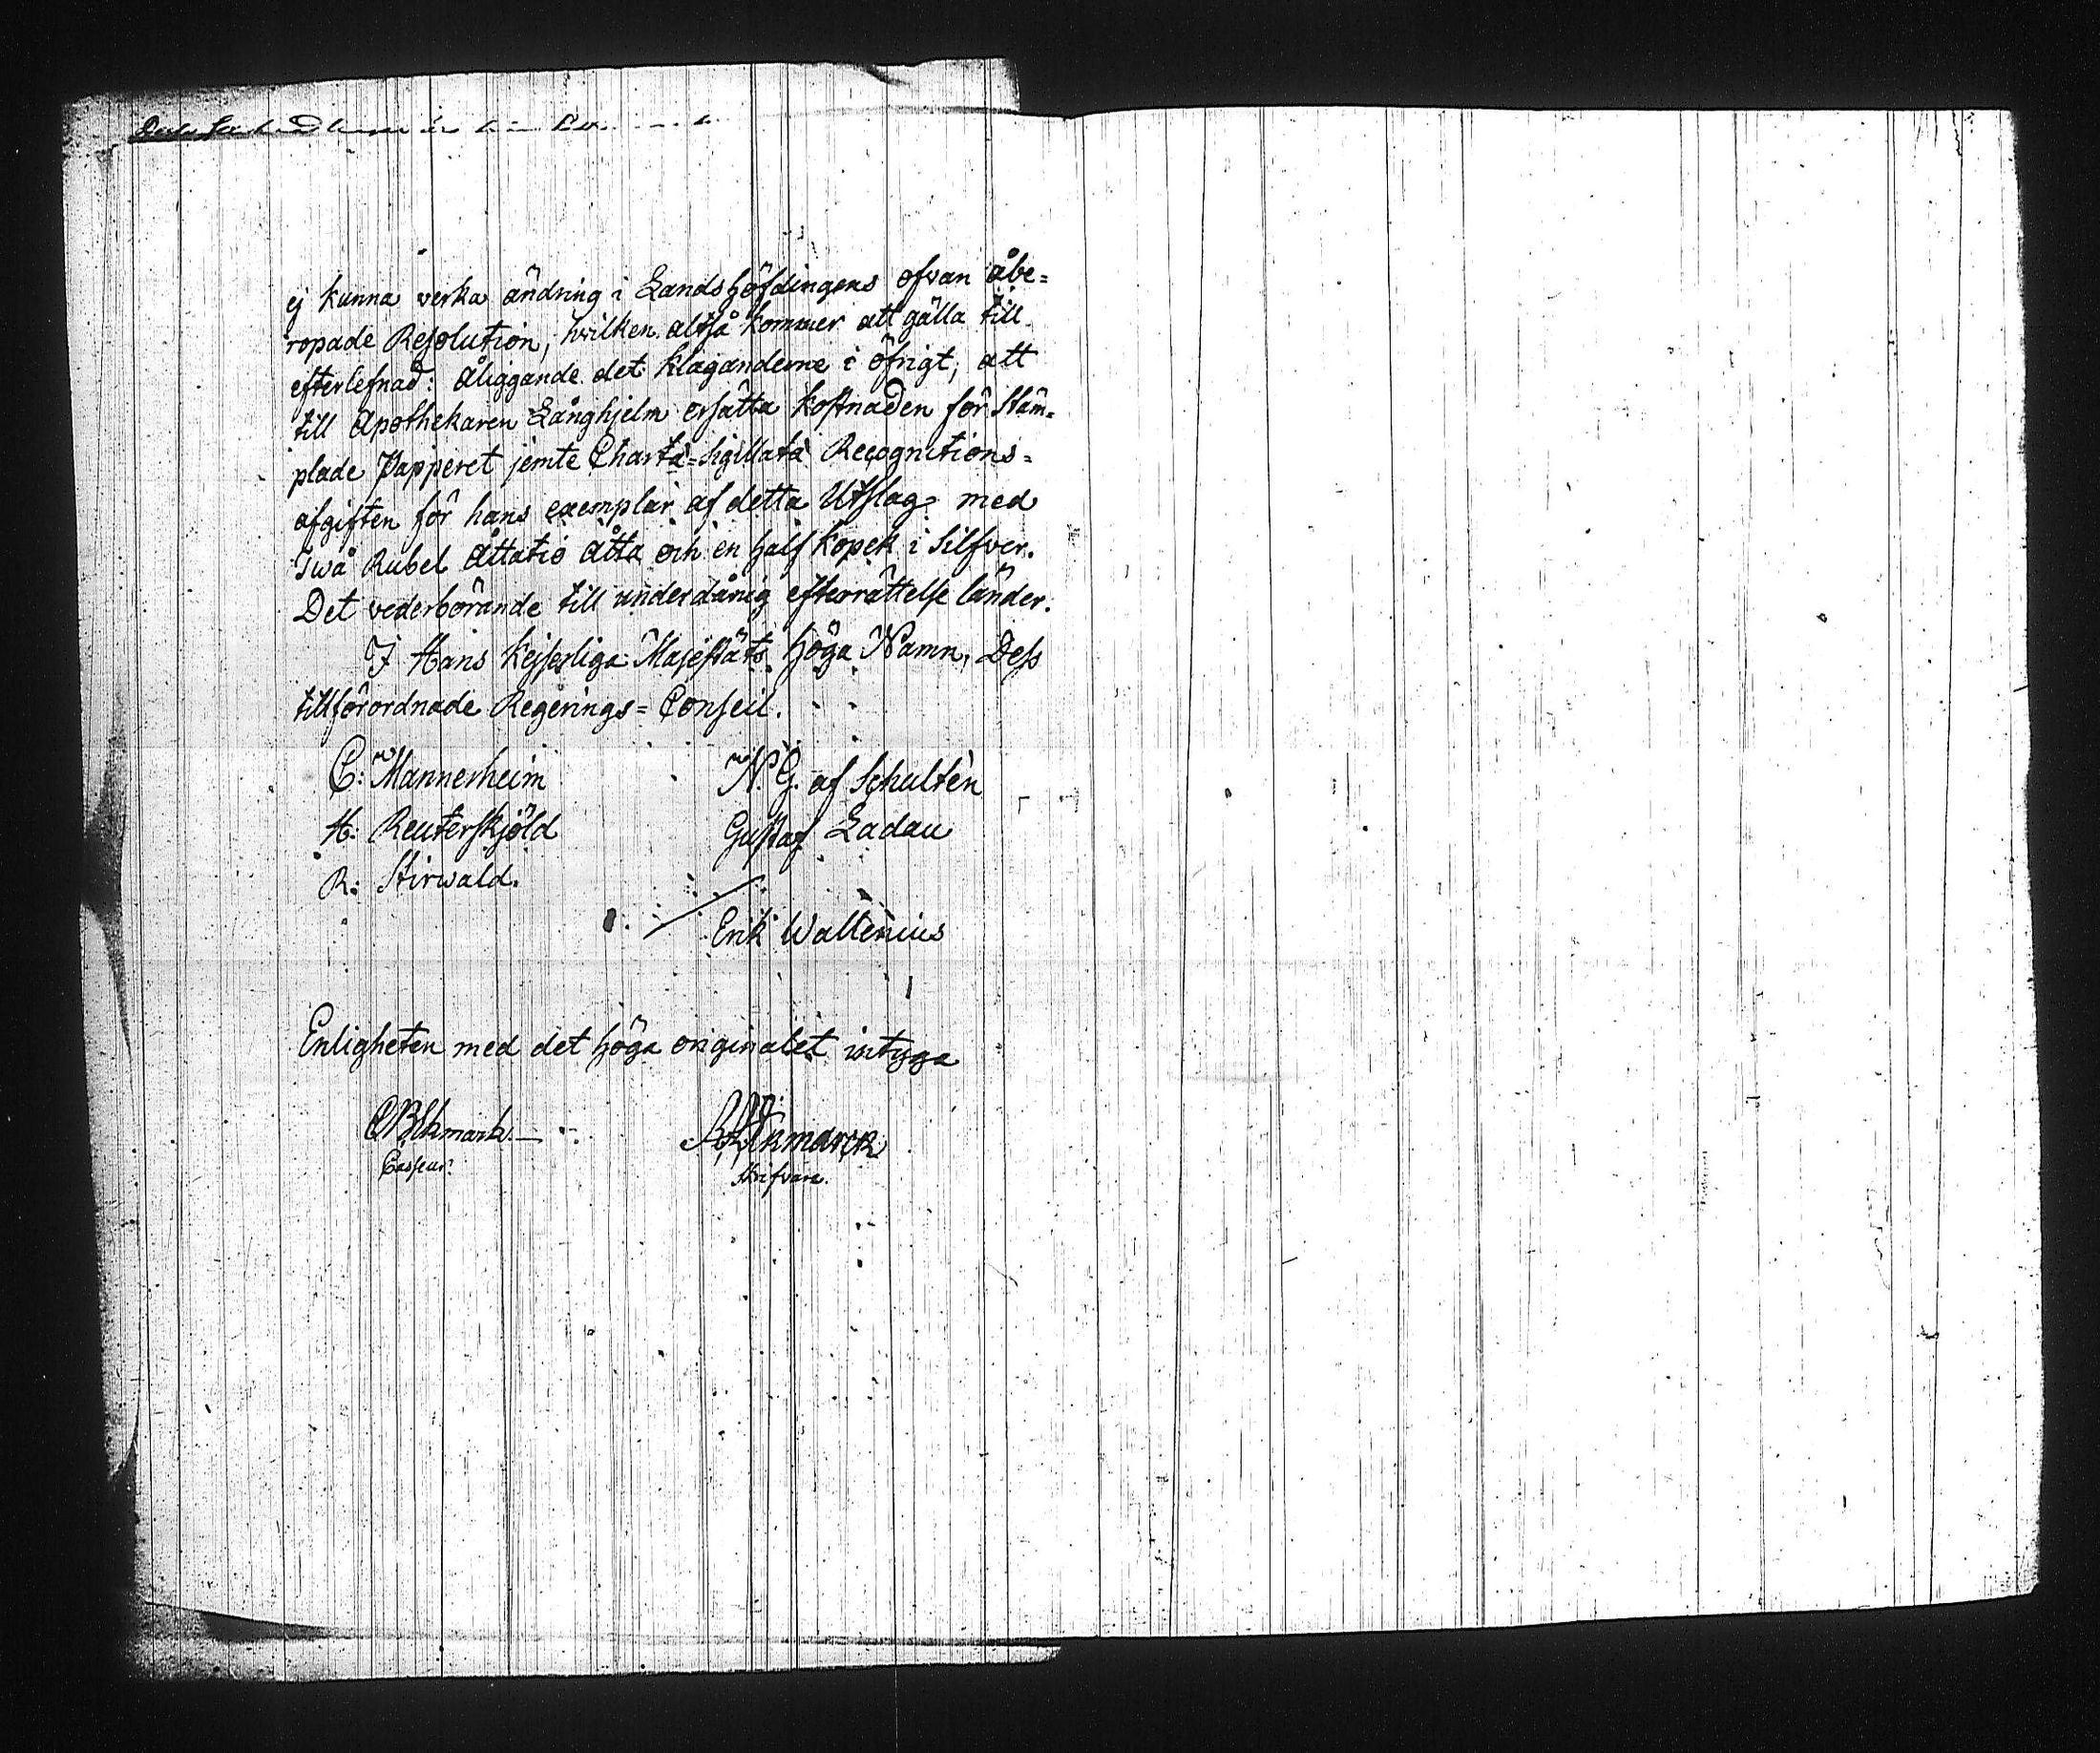 ej kunna verka ändring i Landshöfdingens ofvan åbe=
ropade Resolution, hvilken altså kommer att gälla till
efterlefnad: åliggande det klaganderne i öfrigt, att
till Apothekaren Långhjelm ersätta kostnaden för Stäm=
plade Papperet jemte Charta=Sigillatæ Recognitions=
afgiften för hans exemplar af detta Utslag med
Twå Rubel åttatio åtta och en half kopek i Silfver.
Det vederbörande till underdånig efterrättelse länder.
I Hans Kejserliga Majestäts höga Namn, Dess
tillförordnade Regerings=Conseil.
C: Mannerheim N. G. af Schultén
H: Reuterskjöld Gustaf Ladau
R: Stirwald.
Erik Wallenius
Enligheten med det höga originalet intyga